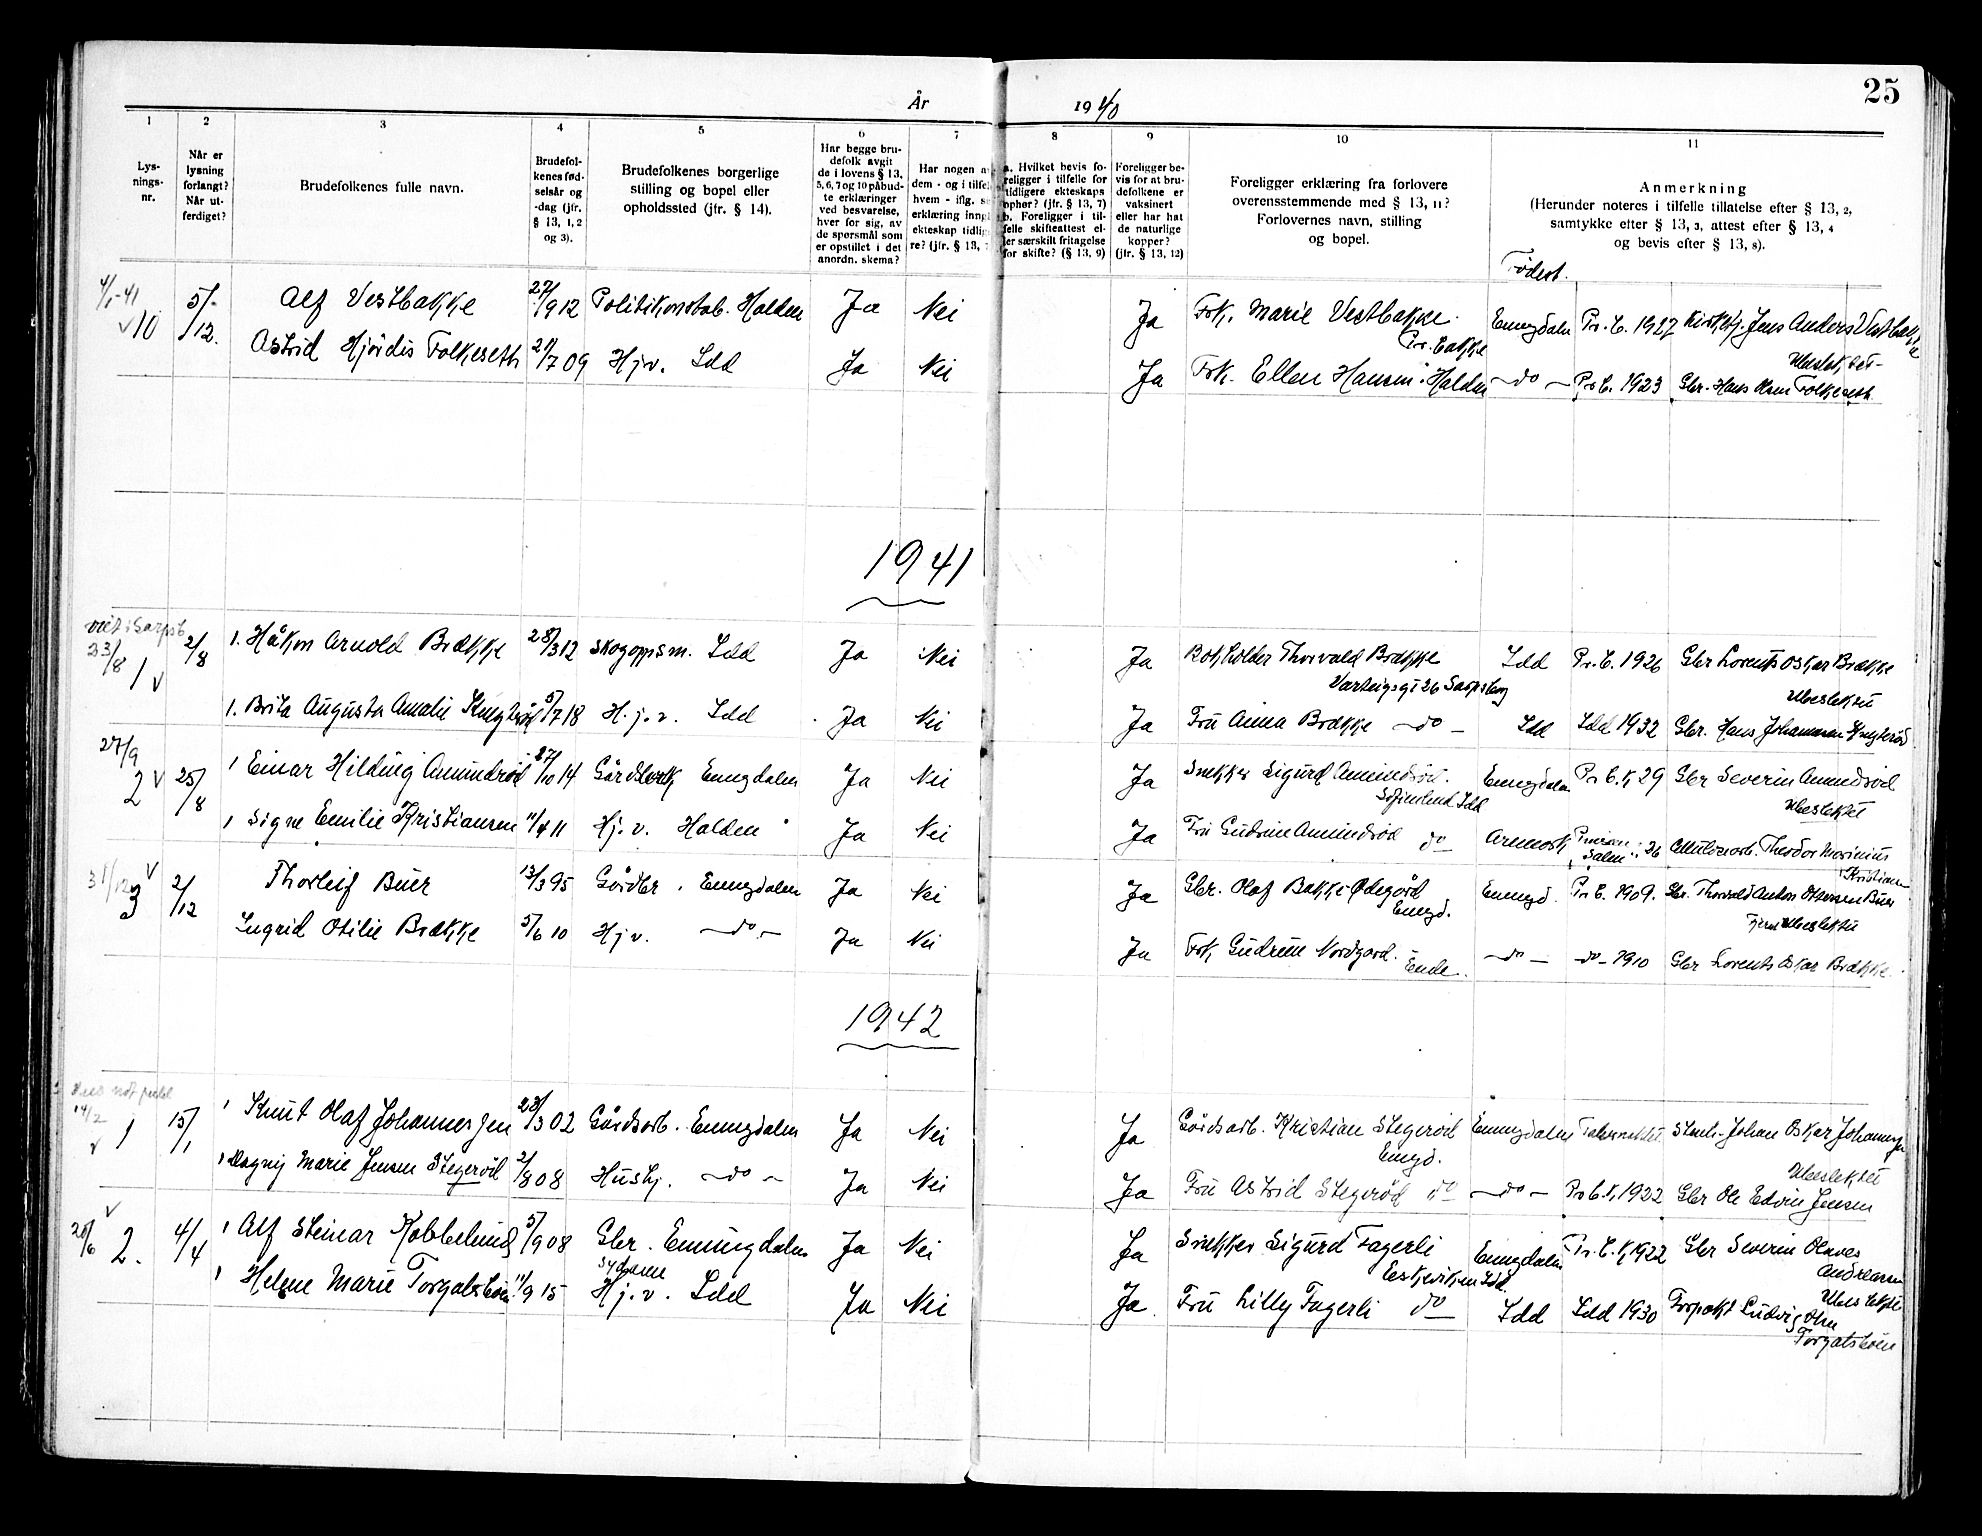 25
År 1940
1 2 3 4 5 6 7 8 9 10 11
Lys-
nings-
nr.
Når er
lysning
forlangt?
Når ut-
ferdiget?
Brudefolkenes fulle navn.
Brudefol-
kenes fød-
selsår og
-dag (jfr.
§ 13, 1, 2
og 3).
Brudefolkenes borgerlige
stilling og bopel eller
opholdssted (jfr. § 14).
Har begge bru-
defolk avgit
de i lovens § 13,
5, 6, 7 og 10 påbud-
te erklæringer
ved besvarelse,
hver for sig, av
de spørsmål som
er opstillet i det
anordn. skema?
Har nogen a
dem - og i tilfel
hvem - iflg. s
erklæring inng
ekteskap tidlig
re? (jfr. § 13, 7
a. Hvilket bevis fo-
religger i tilfelle for
tidligere ekteskaps
ophør? (jfr. § 13, 7)
b. Foreligger i til-
felle skifteattest el-
ler særskilt fritagelse
for skifte? (§ 13, 9)
Foreligger be-
vis for at bru-
defolkene er
vaksinert
eller har hat
de naturlige
kopper?
(jfr. § 13, 12)
Foreligger erklæring fra forlovere
overensstemmende med § 13, 11?
Forlovernes navn, stilling
og bopel.
Anmerkning
(Herunder noteres i tilfelle tillatelse efter § 13, 2,
samtykke efter § 13, 3, attest efter § 13, 4
og bevis efter § 13, 8).
Fødest.
4/1-41 10 5/12. Alf Vestbakke 27/9 12 Politikonstab. Halden Ja Nei Ja Frk. Marie Vestbakke. Pr. Bakke Enngdalen Pr. B. 1927 Kirketj. Jens Anders Vestbakke
Ubeslektet
Astrid Hjördis Folkeseth 21/7 09 Hjv. Idd Ja Nei Ja Frk. Ellen Hansen. Halden -do- Pr. B. 1923 Gbr. Hans Olsen Folkeseth.
1941
viet i Sarpsb
23/8 1 2/8 1. Håkon Arnold Brække 28/3 12 Skogoppsm. Idd Ja Nei Ja Thorvald Brække Idd Pr. B. 1926 Gbr Lorents Oskar Brække
Varteigsgt 26 Sarpsborg Ubeslektet
1. Brita Augusta Amalie 5/7 18 H. j. v. Idd Ja Nei Ja Fru Anna Brække -do- Idd Idd 1932 Gbr. Hans Johannsen
27/9 2 25/8 1 Einar Hilding Amundrød 27/10 14 Enngdalen Ja Nei Ja Snekker Sigurd Amundrød. Enngdalen Pr B. K 29 Gbr Severin Amundrød
Idd Ubeslektet
1 Signe Emilie Kristiansen 11/4 11 Hj. v. Halden Ja Nei Ja Fru Gudrun Amundrød do Aremark 26 Theodor Marinius
Kristian
31/12 3 2/12 Thorleif Buer 13/3 95 Gårdbr. Enngdalen Ja Nei Ja Gbr. Olaf Bakke Ødegård Enngd. Pr B. 1909. Gbr. Thorvald Anton Buer
Enngd. Fjernt Ubeslektet
Ingrid Otilie Brække 5/6 10 Hjv. -do- Ja Nei Ja Frk. Gudrun Nordgard. Ende. -do- -do- 1910 Gbr Lorents Oskar Brække.
1942
14/2 1 15/1 1 Knut Olaf Johannesen 23/3 02 Gårdsarb. Enngdalen Ja Nei Ja Gårdsarb. Kristian Stegerød Enngdalen Johan Oskar Johannesen
Enngd. Ubeslektet
1 Dagny Marie Jensen Stegerød 2/8 08 Hushj. -do- Ja Nei Ja Fru Astrid Stegerød do -do- Pr b. K. 1922 Gbr Ole Edvin Jensen
20/6 2. 4/4 1 Alf Steinar Kobbelund 5/9 08 Gbr. Enningdalen Ja Nei Ja Snekker Sigurd Fagerli Enngdalen Pr. B. K. 1922 Gbr Severin Olaves
Eskeviken Idd. Andreasen
Ubeslektet
1 Helene Marie Torgalsbøen 11/9 15 Syerske
Hj. v. Idd Ja Nei Ja Fru Lilly Fagerli do Idd Idd 1930 Forpakt Ludvig Olsen
Torgalsbøen